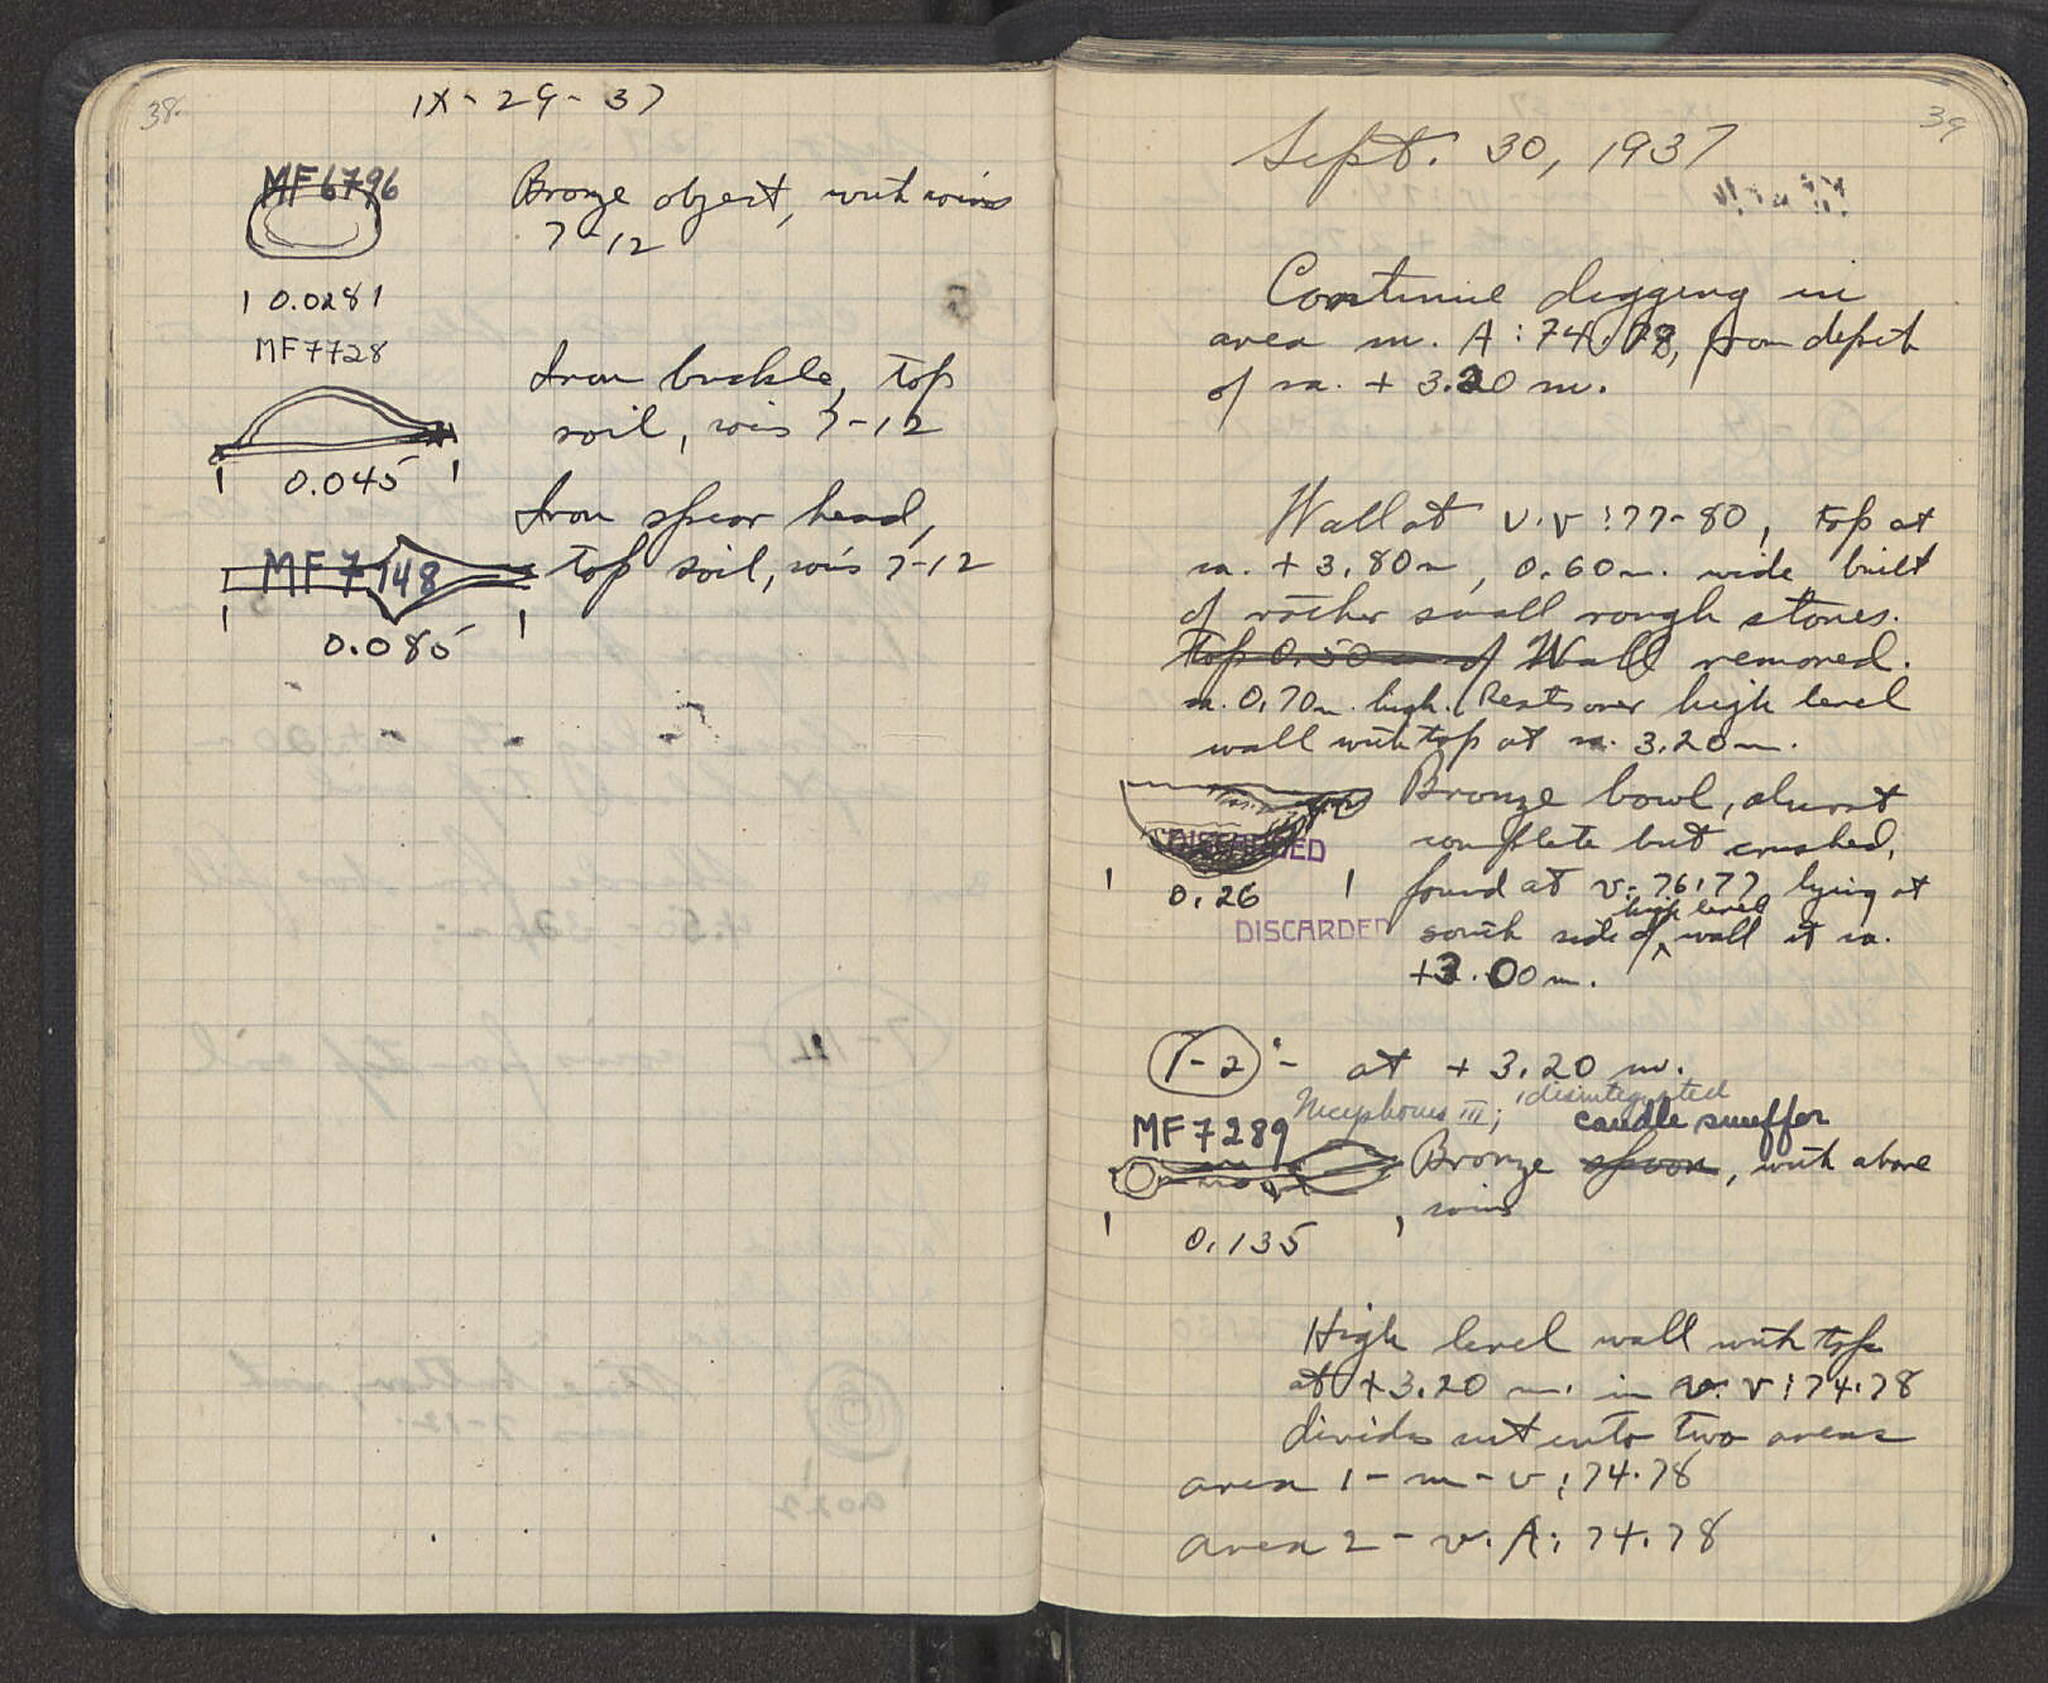 38.
IX - 29 - 37
MF6796
Bronze object, with coins
7-12
0.028
MF7728
Iron buckle, top
soil, coins 7-12
0.045
Iron spear head,
top soil, coins 7-12
MF7148
0.085
39
Sept. 30, 1937
Continue digging in
area m. A : 74.78, from depth
of ca. + 3.20 m.
Wall at v.v : 77-80, top at
ca. + 3.80 m, 0.60 m. wide, built
of rather small rough stones.
top 0.50 m of Wall removed.
ca. 0.70 m. high. Rests over high level
wall with top at ca. 3.20 m.
Bronze bowl, almost
complete but crushed,
found at v : 76.77 lying at
south side of high level wall at ca.
+3.00 m.
DISCARDED
0.26
DISCARDED
1-2 :- at + 3.20 m.
Nicephorus III; 1 disintegrated
MF7289
candle snuffer
Bronze spoon, with above
coins
0.135
High level wall with top
at +3.20 m. in v. v : 74.78
divides cut into two areas
area 1 - m - v : 74.78
area 2 - v. A : 74.78